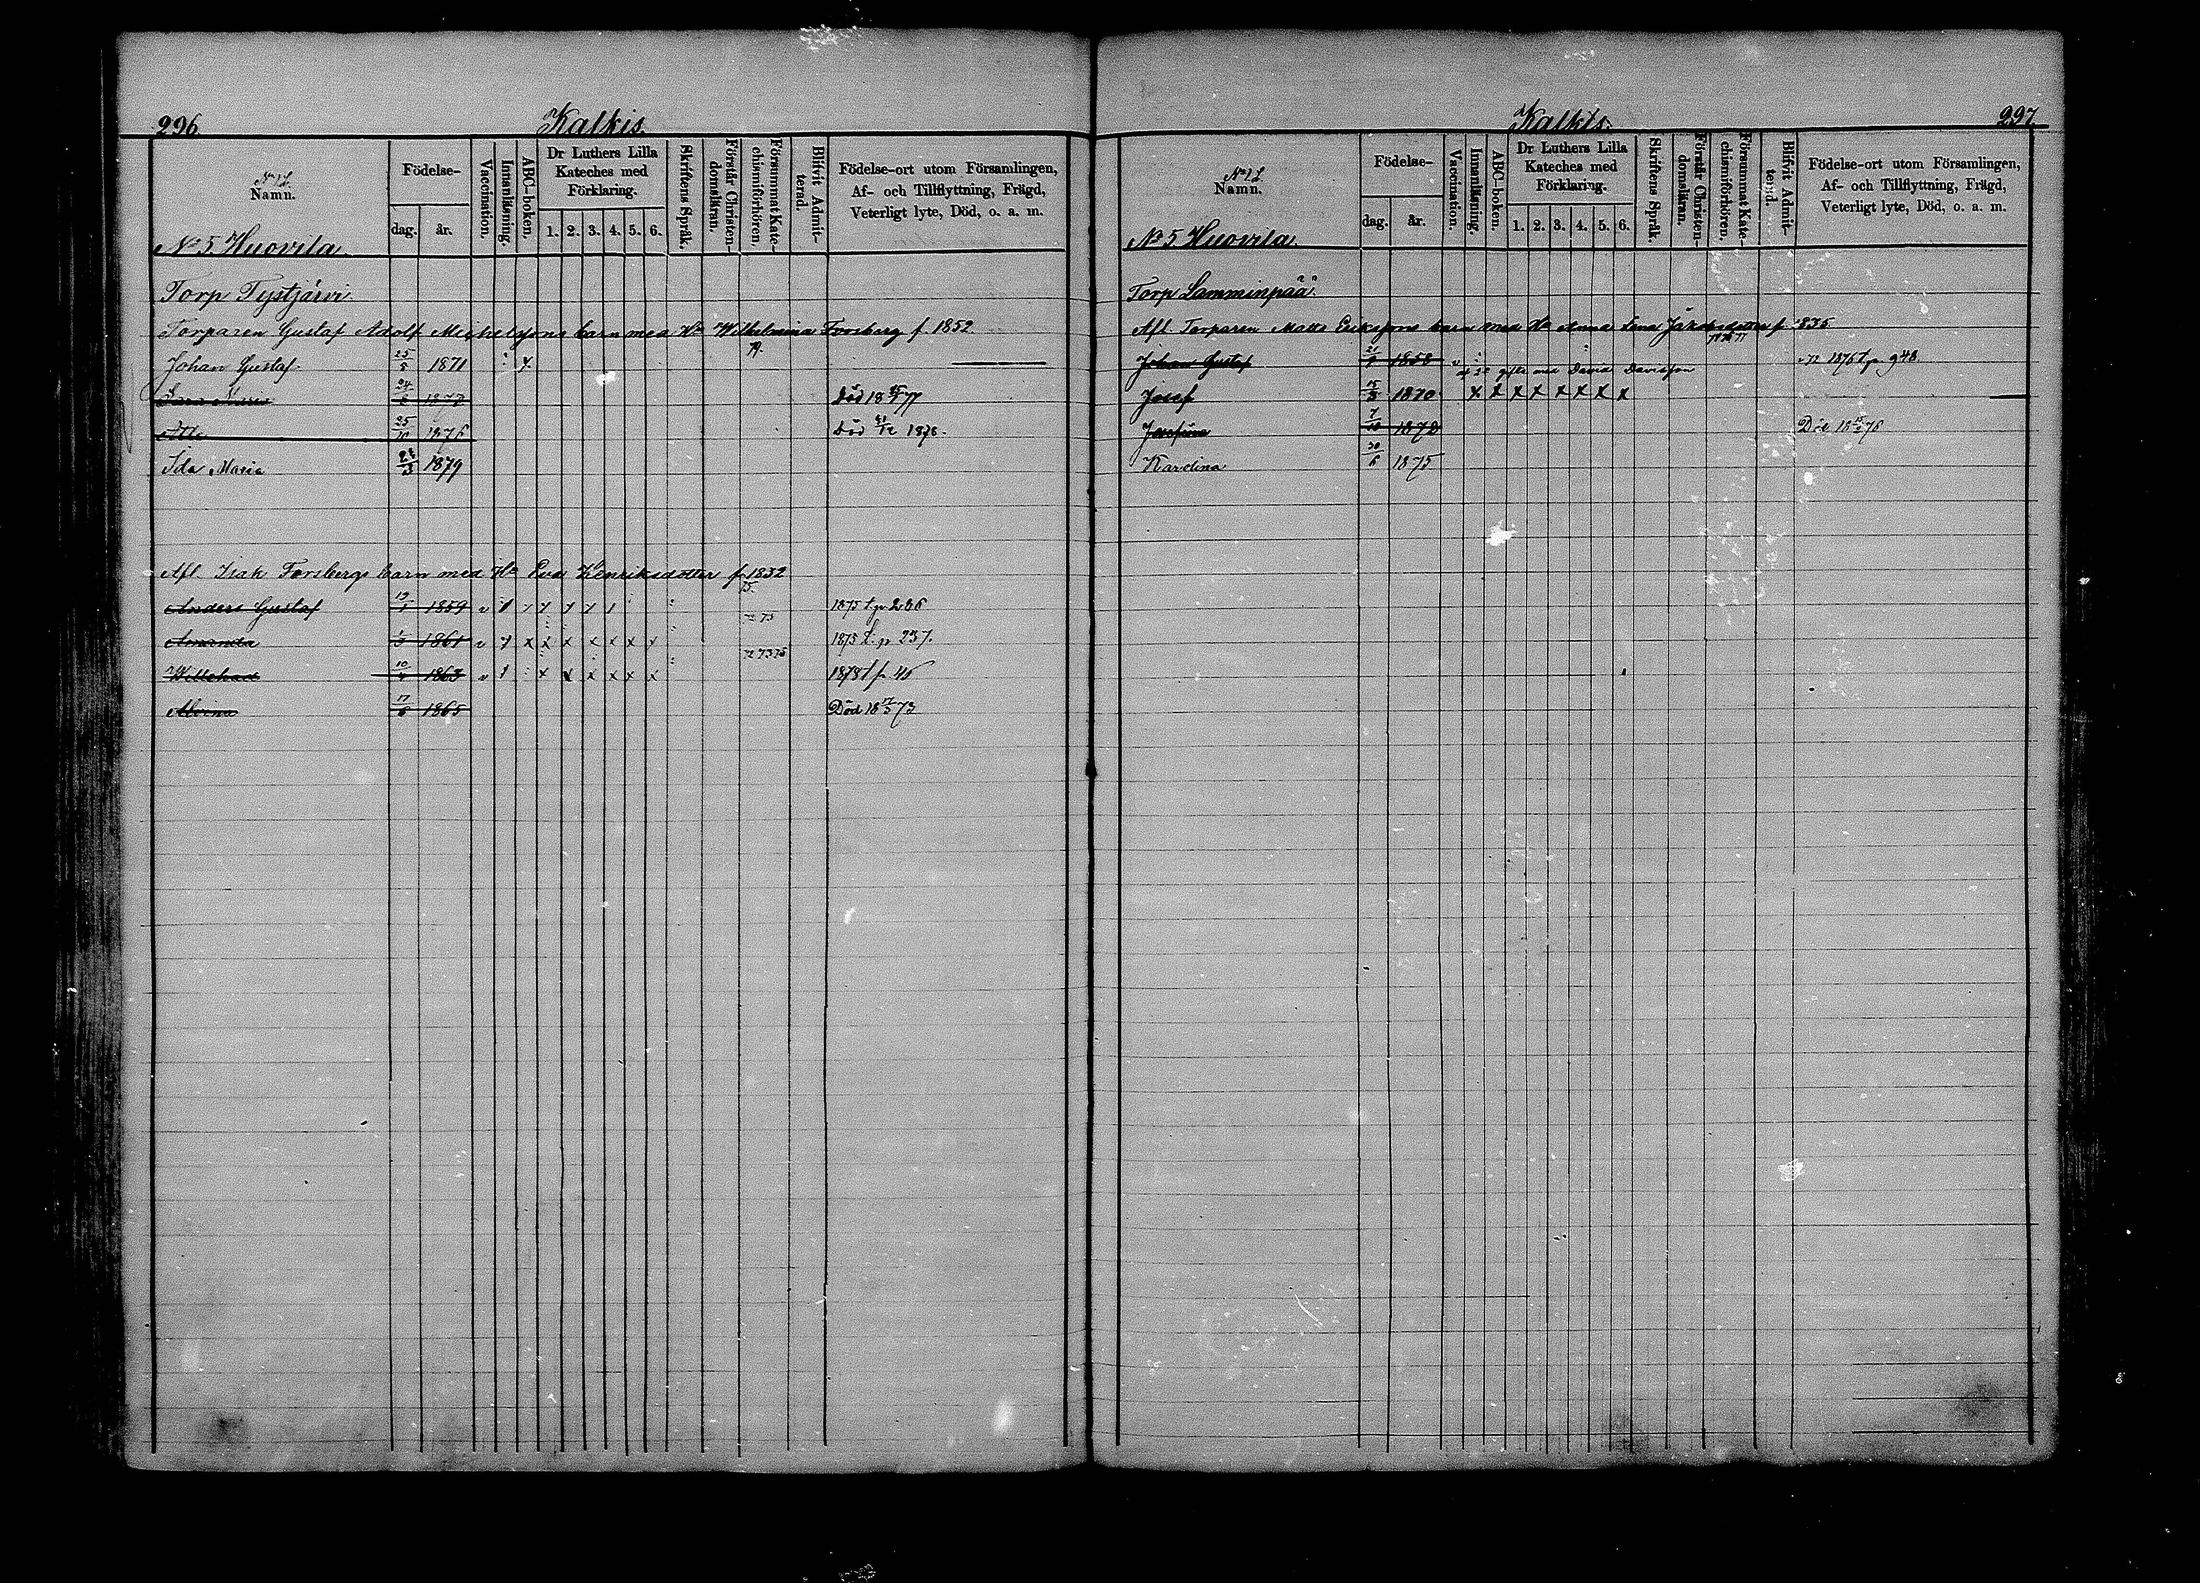 296
Kalkis.
Namn.
Födelse-
dag.
år.
Vaccination.
Innanläsning.
ABC-boken.
Dr Luthers Lilla
Kateches med
Förklaring.
1. 2. 3. 4. 5. 6.
Skriftens Språk.
Förstår Christen-
domsläran.
Försummat Kate-
chismiförhören.
Blifvit Admit-
terad.
Födelse-ort utom Församlingen,
Af- och Tillflyttning, Frägd,
Veterligt lyte, Död, o. a. m.
No 5 Huovila
Torp Tystjärvi.
Torparen Gustaf Adolf Michelssons barn med Ha Wilhelmina Forsberg f. 1852
Johan Gustaf 25/5 1871
Död 18 77
25/10 1876 Död 21/12 1876.
Ida Maria 1879
Afl. Isak Forsbergs barn med Ha Eva Henriksdotter f. 1832
Anders Gustaf 1859 v 1875 t. p 236
Amanda 1861 v 1875 t. p 237.
Willehad 10 1863 v 1878 t p 46
17/6 1865 Död 18 73
297
Kalkis.
Namn.
Födelse-
dag.
år.
Vaccination.
Innanläsning.
ABC-boken.
Dr Luthers Lilla
Kateches med
Förklaring.
1. 2. 3. 4. 5. 6.
Skriftens Språk.
Förstår Christen-
domsläran.
Försummat Kate-
chismiförhören.
Blifvit Admit-
terad.
Födelse-ort utom Församlingen,
Af- och Tillflyttning, Frägd,
Veterligt lyte, Död, o. a. m.
No 5 Huovila
Torp Lamminpää.
Afl. Torparen Matts Erikssons barn med Ha Anna Lena Jakobsdotter f. 1835
Johan Gustaf 21 1858 v 1876 t p 948
gifta med David Davidsson
Josef 15/3 1870 x x x x x x x x
Josefina 7/10 1872 Död 18 76
Karolina 20/6 1875